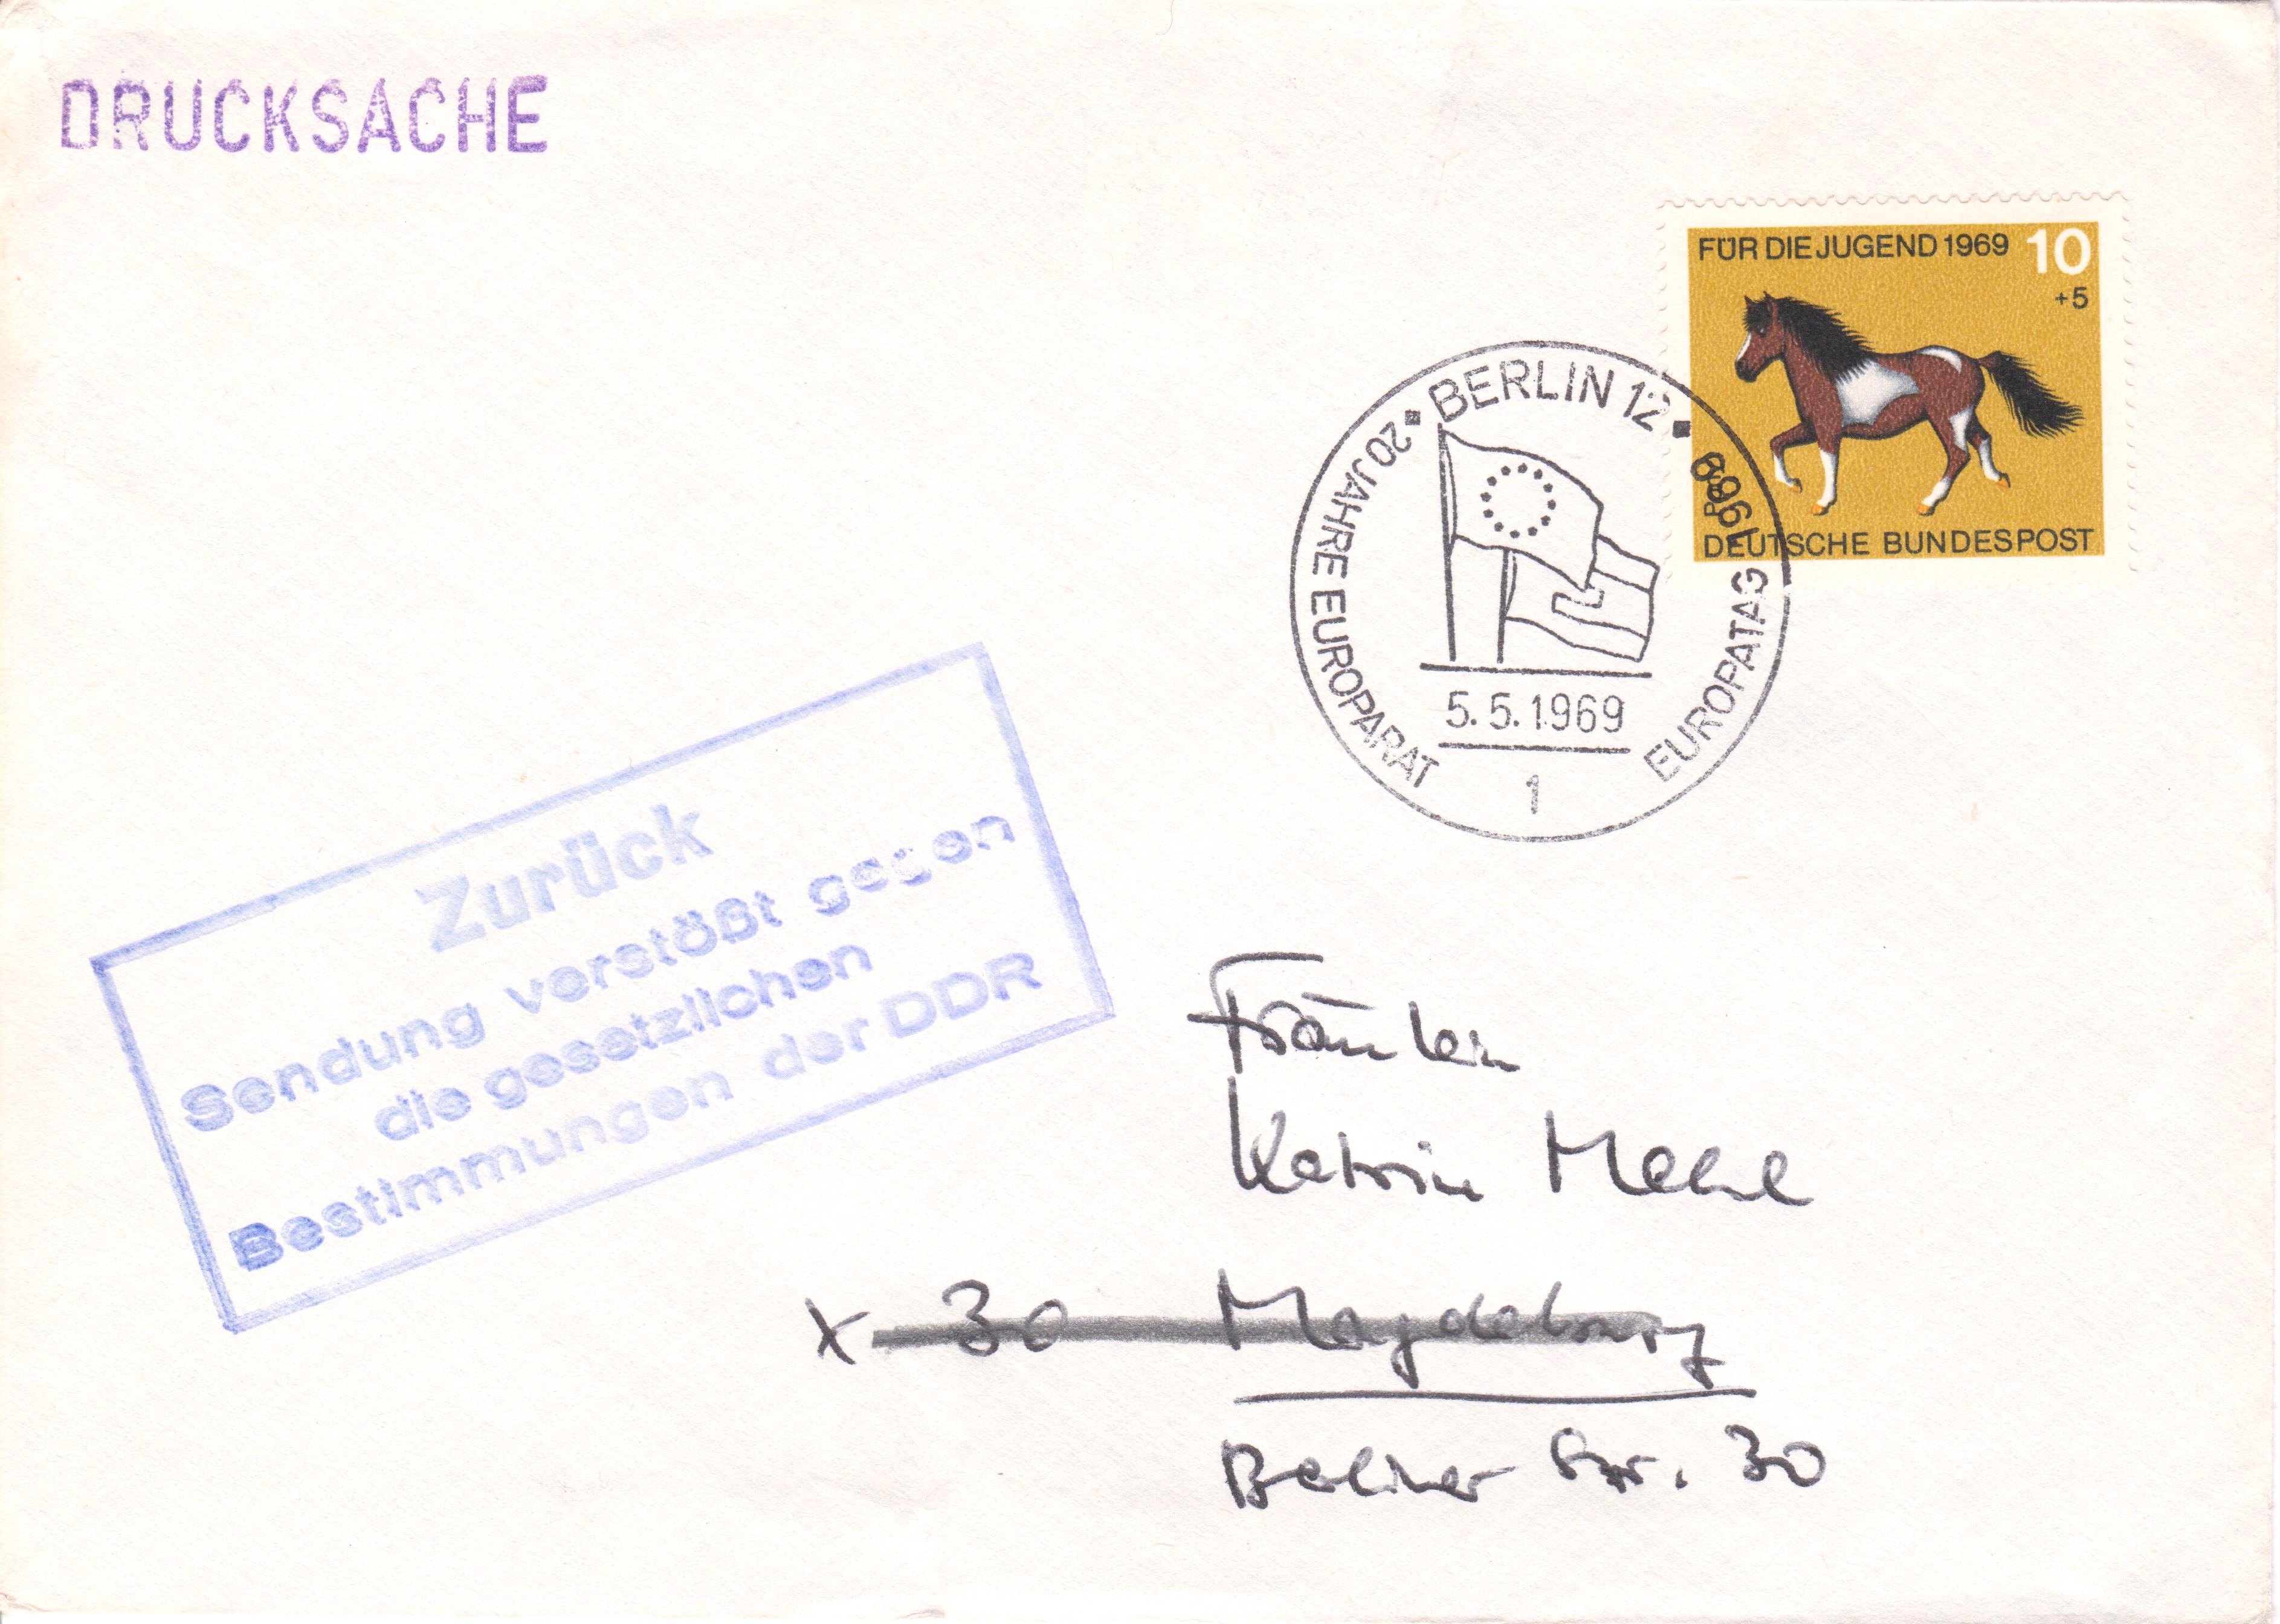 DRUCKSACHE
FÜR DIE JUGEND 1969 10
+5
DEUTSCHE BUNDESPOST
BERLIN 12
20 JAHRE EUROPARAT
EUROPATAG 1969
5.5.1969
1
Zurück
Sendung verstößt gegen
die gesetzlichen
Bestimmungen der DDR
Fräulein
Katrin
X 30 Magdeburg
Berliner Str. 30